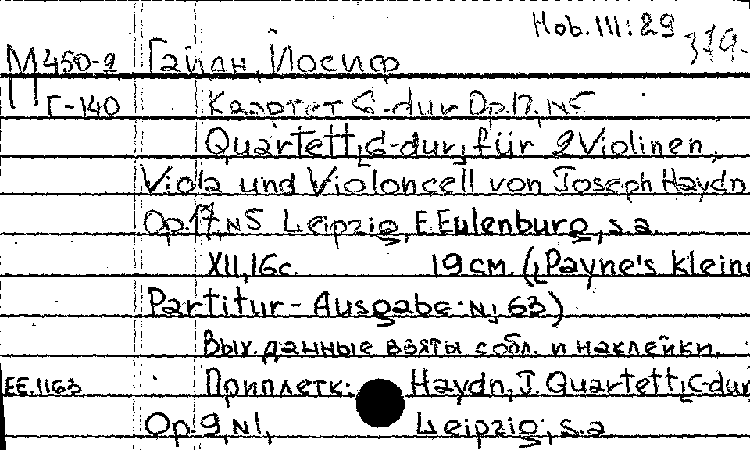 Hob. III: 29 379-
М450-2 Гайдн, Йосиф
Г-140 Квартет G-dur Op.17, N5
Quartett, G-dur, für 2 Violinen,
Viola und Violoncell von Joseph Haydn
Op.17, N5 Leipzig, E. Eulenburg, s.a.
XII, 16 с. 19 см. (Payne's kleine
Partitur-Ausgabe. N, 63)
Вых. данные взяты с обл. и наклейки.
EE.1163 Приплетк: Haydn, J. Quartett, C-dur
Op. 9, N1, Leipzig, s.a